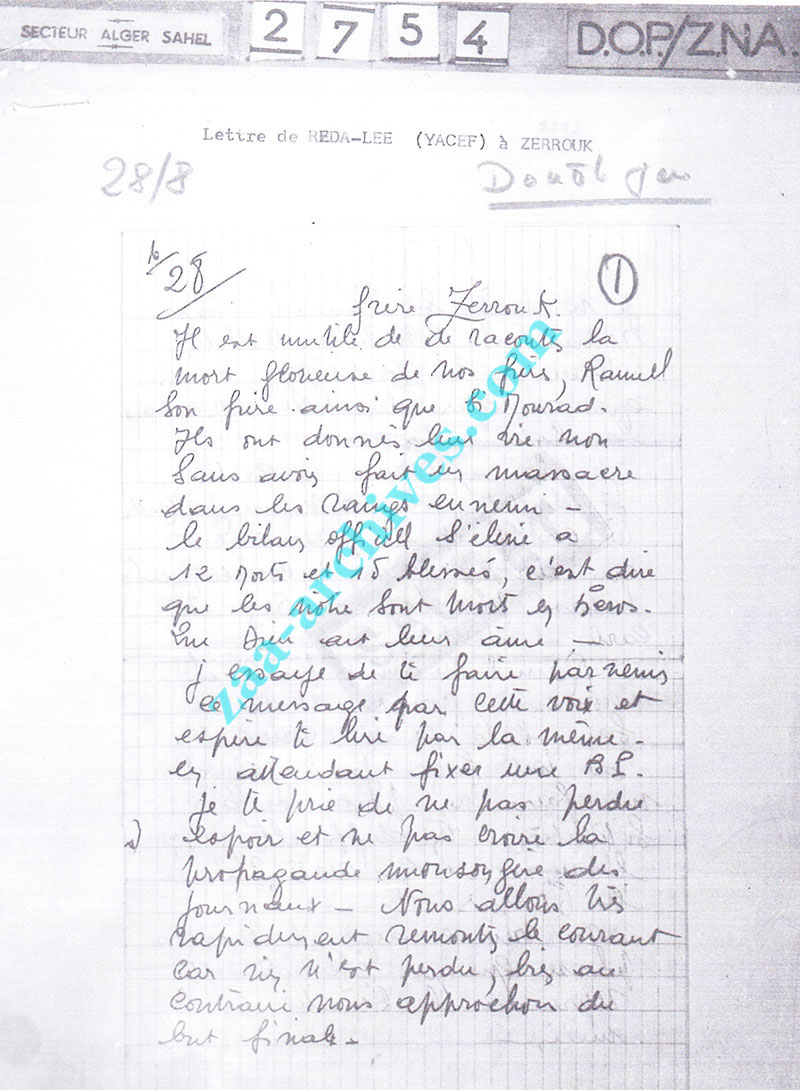 SECTEUR ALGER SAHEL
2 7 5 4
D.O.P./Z.N.A.
Lettre de REDA-LEE (YACEF) à ZERROUK
28/8
16/28
1
frère Zerrouk.
Il est inutile de de raconter la
mort glorieuse de nos frères, Ramell
Son frère ainsi que Si Mourad.
Ils ont donnés leur vie non
Sans avoir fait un massacre
dans les rangs ennemi -
le bilan officiell S'élève a
12 Morts et 15 blessés, c'est dire
que les nôtre Sont Morts en héros.
Que Dieu ait leur âme -
j'essaye de te faire parvenir
ce message par cette voix et
espère te lire par la même.
en attendant fixer une BL.
je te prie de ne pas perdre
espoir et ne pas croire la
propagande mensongère des
journaux - Nous allons très
rapidement remonter le courant
Car rien n'est perdu, bien au
Contraire nous approchon du
but finale -
zaa-archives.com